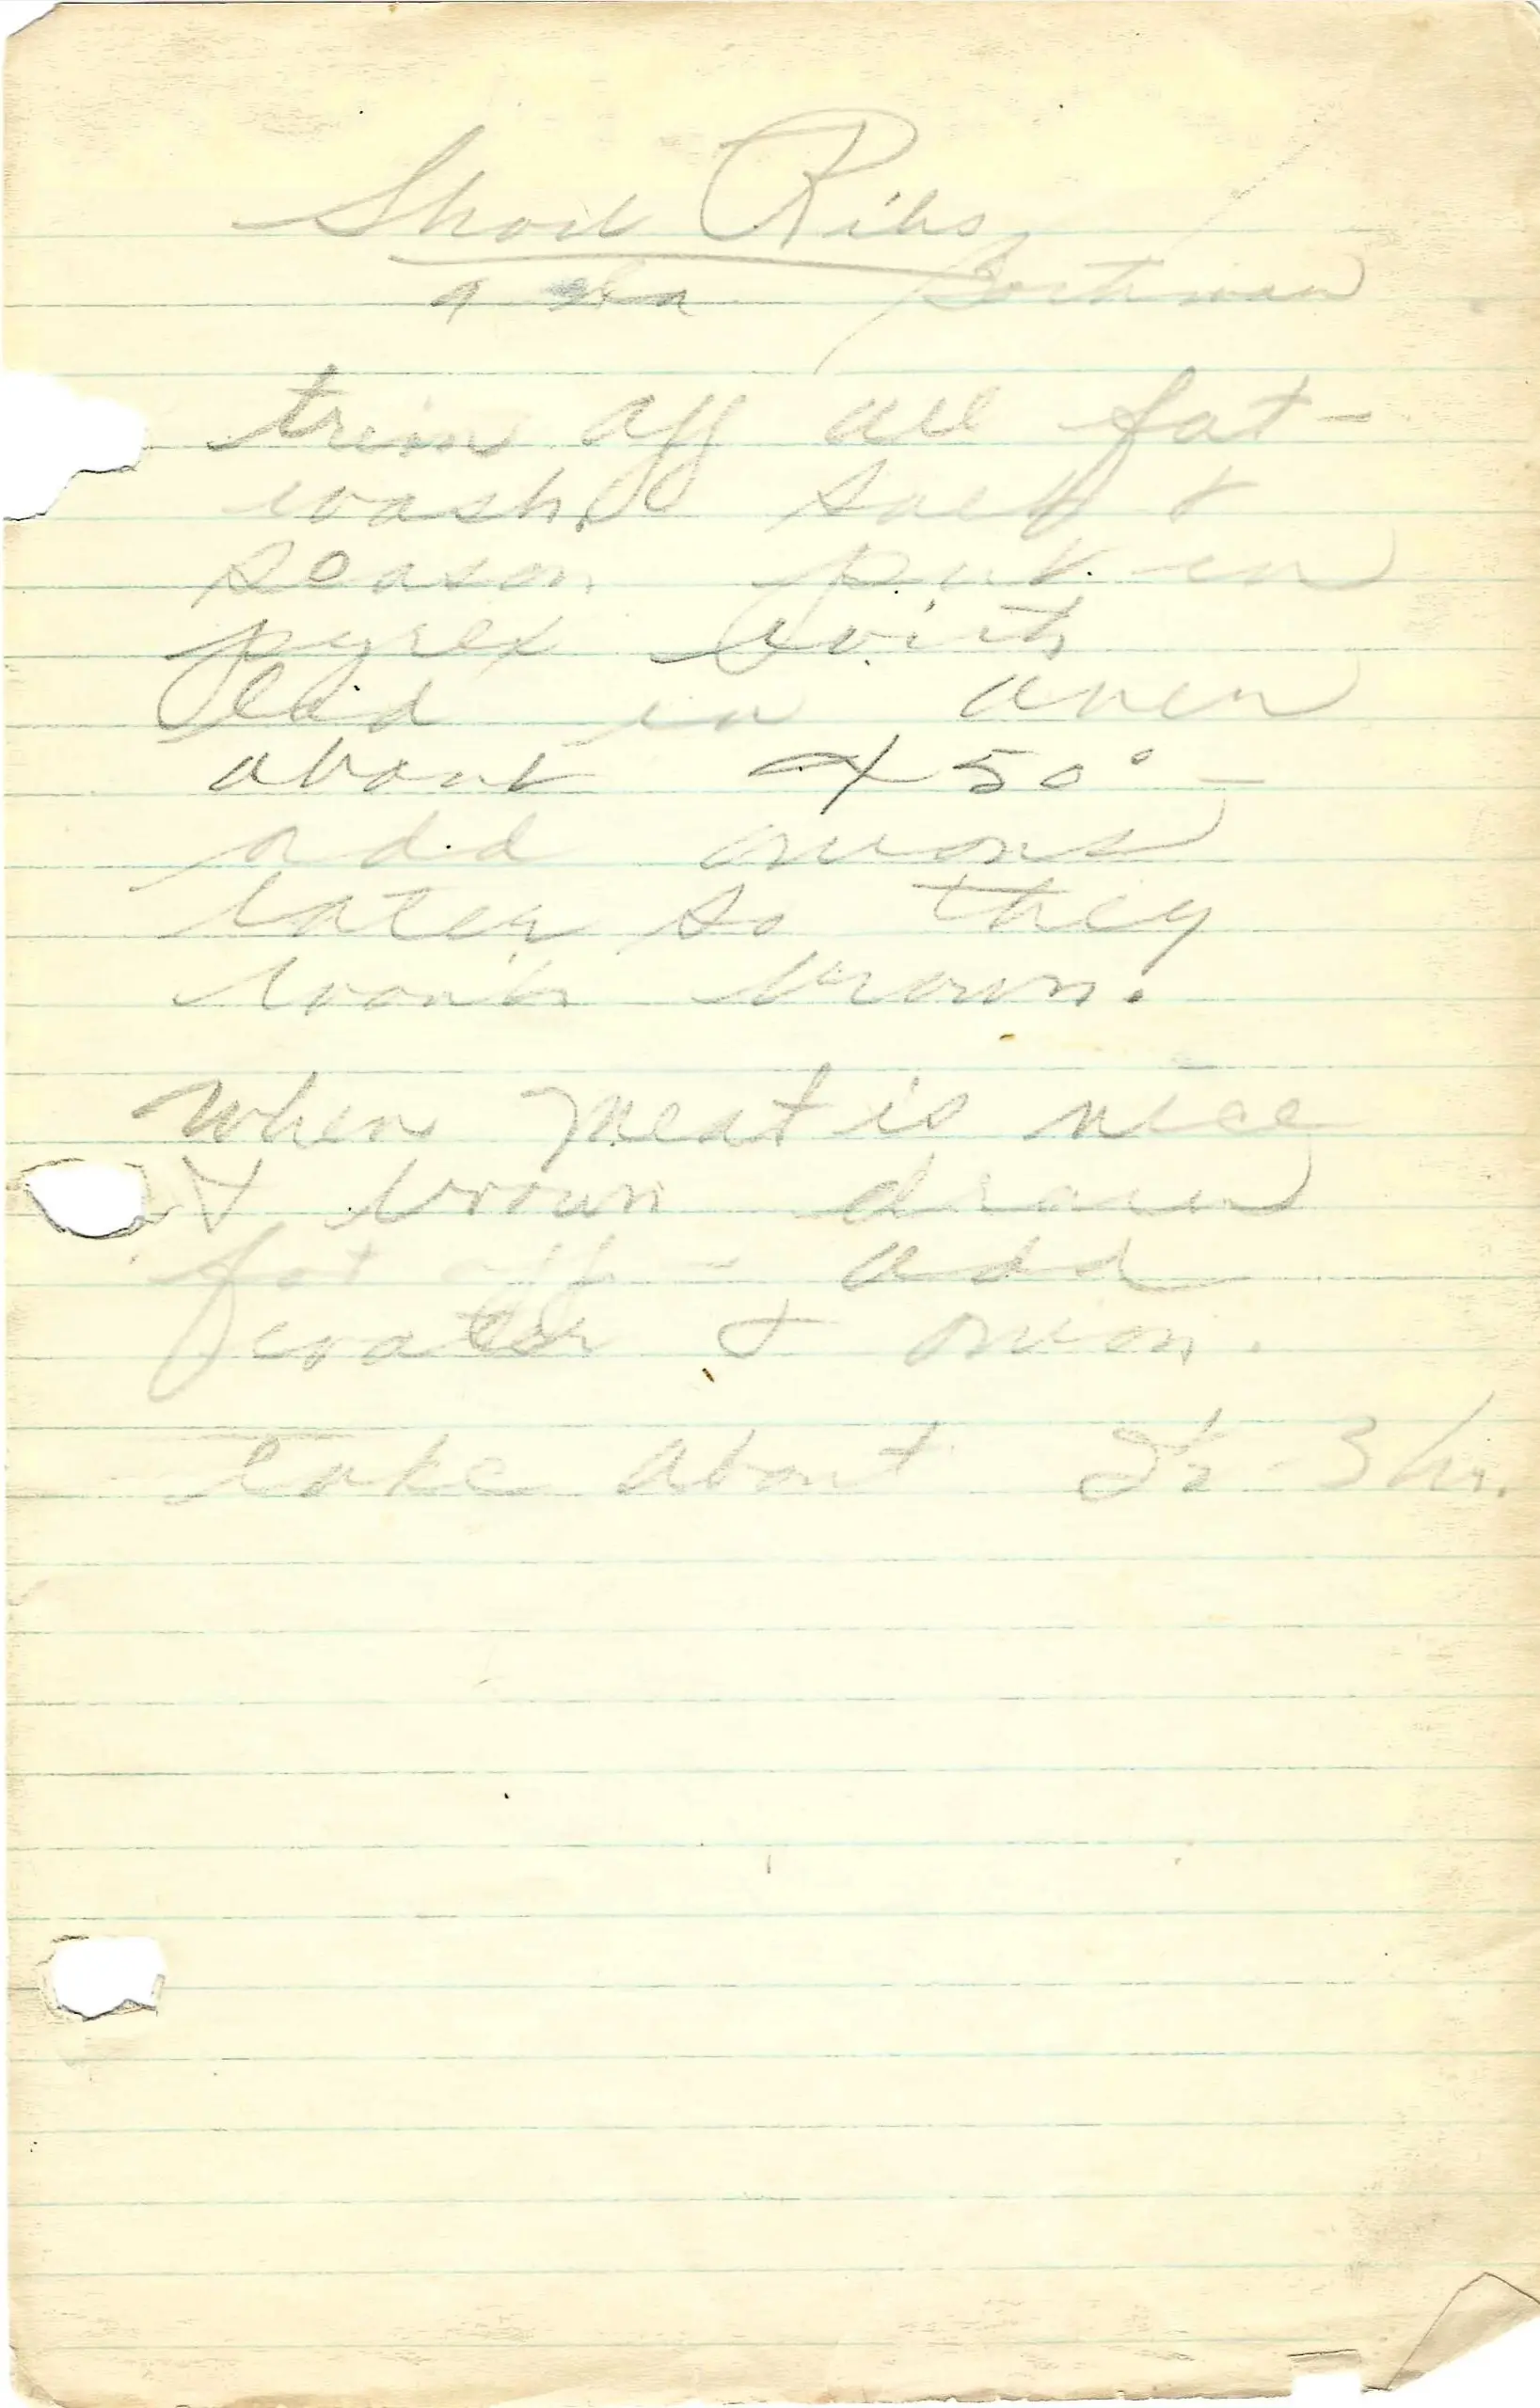 Short Ribs
a la Bortman
trim off all fat -
wash, salt &
season put in
pyrex with
lid in oven
about 450° -
add onions
later so they
won't brown.
When meat is nice
& brown drain
fat off - add
water & onion.
take about 2½ - 3 hr.